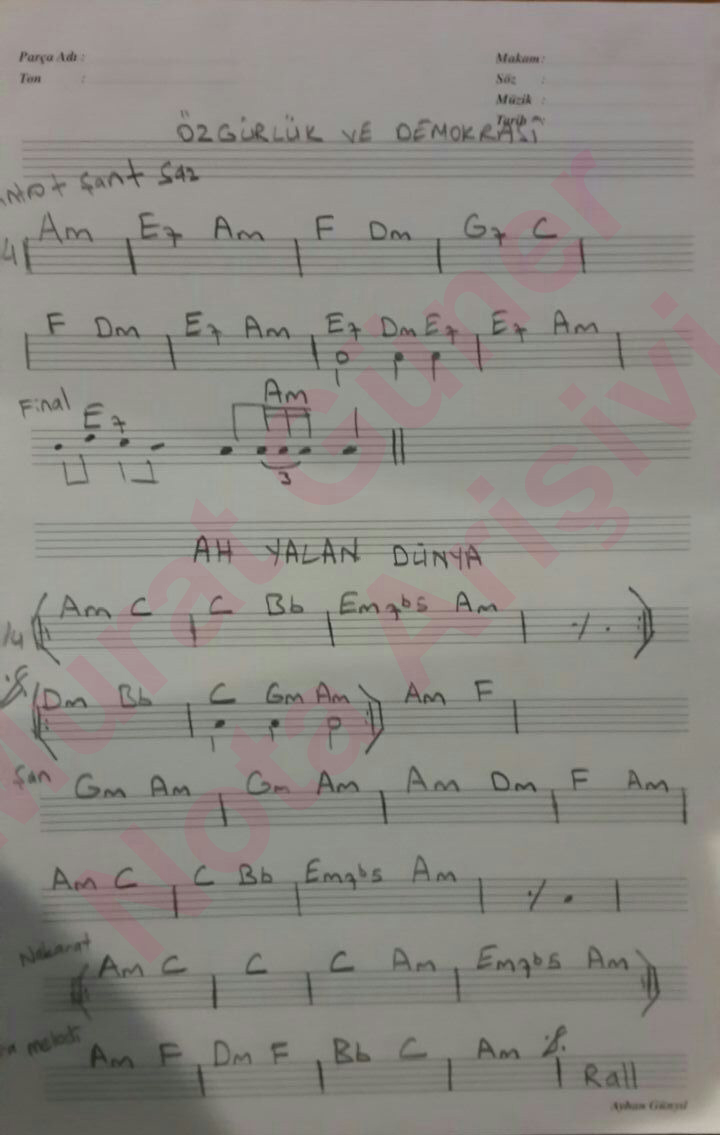 Parça Adı :
Makam:
Ton :
Söz :
Müzik :
Tarih :
ÖZGÜRLÜK VE DEMOKRASİ
Şant Saz
4 Am E7 Am F Dm G7 C
F Dm E7 Am E7 Dm E7 E7 Am
Final E7 Am
3
AH YALAN DÜNYA
/4 Am C C Bb Em7b5 Am ./.
Dm Bb C Gm Am Am F
Şan Gm Am Gm Am Am Dm F Am
Am C C Bb Em7b5 Am ./.
Nakarat Am C C C Am Em7b5 Am
melodi Am F Dm F Bb C Am Rall
Ayhan Günyıl
Murat Güner
Nota Arişivi